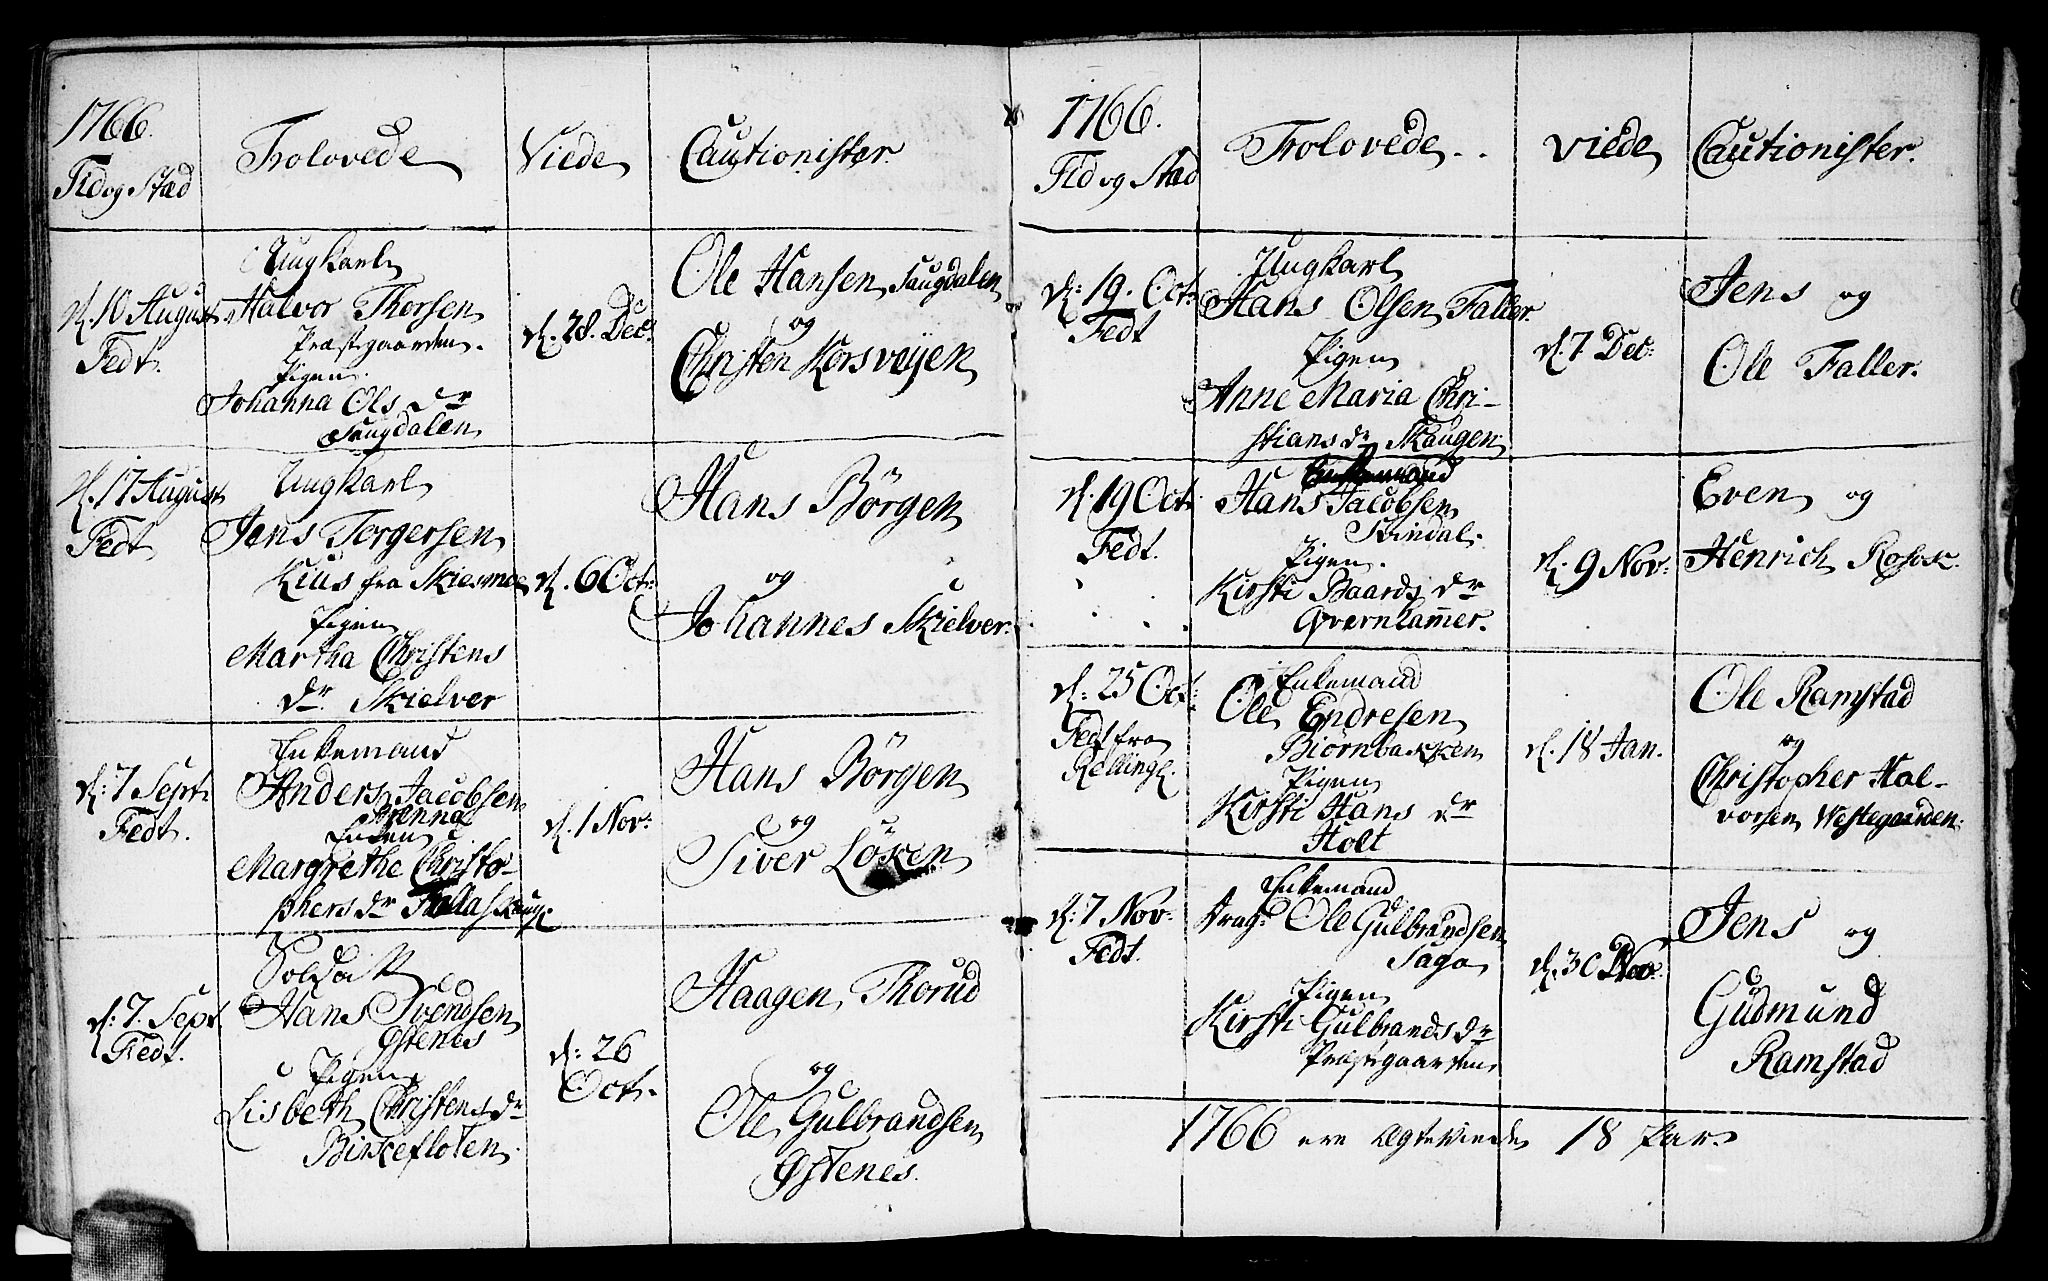 1766.
Tid og Stæd
Trolovede
Viede
Cautionister.
d. 10 August
Fedt.
Ungkarl
Halvor Thorsen
Præstgaarden.
Pigen.
Johanna Ols dr
Saugdalen
d. 28. Dec:
Ole Hansen Saugdalen
og
Christen Korsveyen
d. 17 August
Fedt
Ungkarl
Jens Torgersen
Kius fra Skiesmoe
Pigen
Martha Christens
dr. Skielver
d. 6 Oct:
Hans Börgen
og
Johannes Skielver.
d: 7 Sept:
Fedt.
Enkemand
Anders Jacobsen
Brenna
Enken
Margrethe Christo-
phers dr
d. 1 Nov:
Hans Börgen
og
Siver Löken
d: 7. Sept.
Fedt.
Soldat
Hans Svendsen
Østenes
Pigen
Lisbeth Christens dr
Birkefloten.
d: 26
Oct.
Haagen Thorud
og
Ole Gulbrandsen
Østenes.
1766.
Tid og Stæd
Trolovede..
viede
Cautionister.
d: 19. Oct:
Fedt
Ungkarl
Hans Olsen Faller.
Pigen
Anne Maria Chri-
stians dr Skaugen
d. 7 Dec:
Jens og
Ole Faller.
d. 19 Oct.
Fedt.
Enkemand
Hans Jacobsen
Svindal.
Pigen.
Kirsti Baards dr
Qvernhammer.
d. 9 Nov:
Even og
Henrich Rosok.
d: 25 Oct:
Fedt fra
Rellingl.
Enkemand
Ole Endresen
Biörnbakken
Pigen
Kirsti Hans dr
Holt
d. 18 Jan.
Ole Ramstad
og
Christopher Hal-
vorsen Westegaarden.
d: 7 Nov:
Fedt.
Enkemand
Drag: Ole Gulbrandsen
Saga
Pigen
Kirsti Gulbrands dr
Præstgaarden
d. 30 Nov:
Jens og
Gudmund
Ramstad
1766 ere Ægteviede 18 Par.